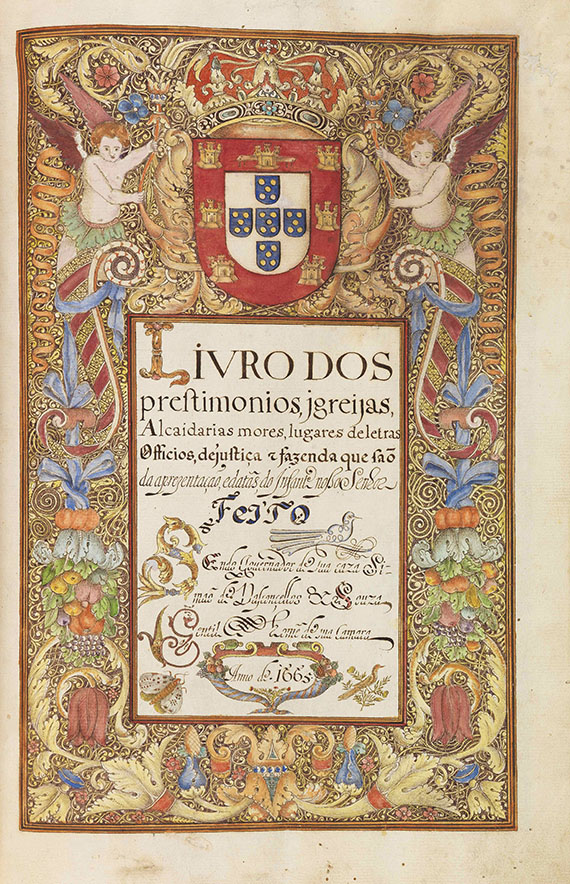 LIVRO DOS
prestimonios, jgreijas,
Alcaidarias mores, lugares de letras
Officios, de justiça & fazenda que saõ
da apresentação, e datas do Infante nosso Senhor
de FEITO
Sendo Governador de sua caza Si-
mão de Vasconcellos & Souza
Gentil Homẽ de sua Camara
Anno de 1665